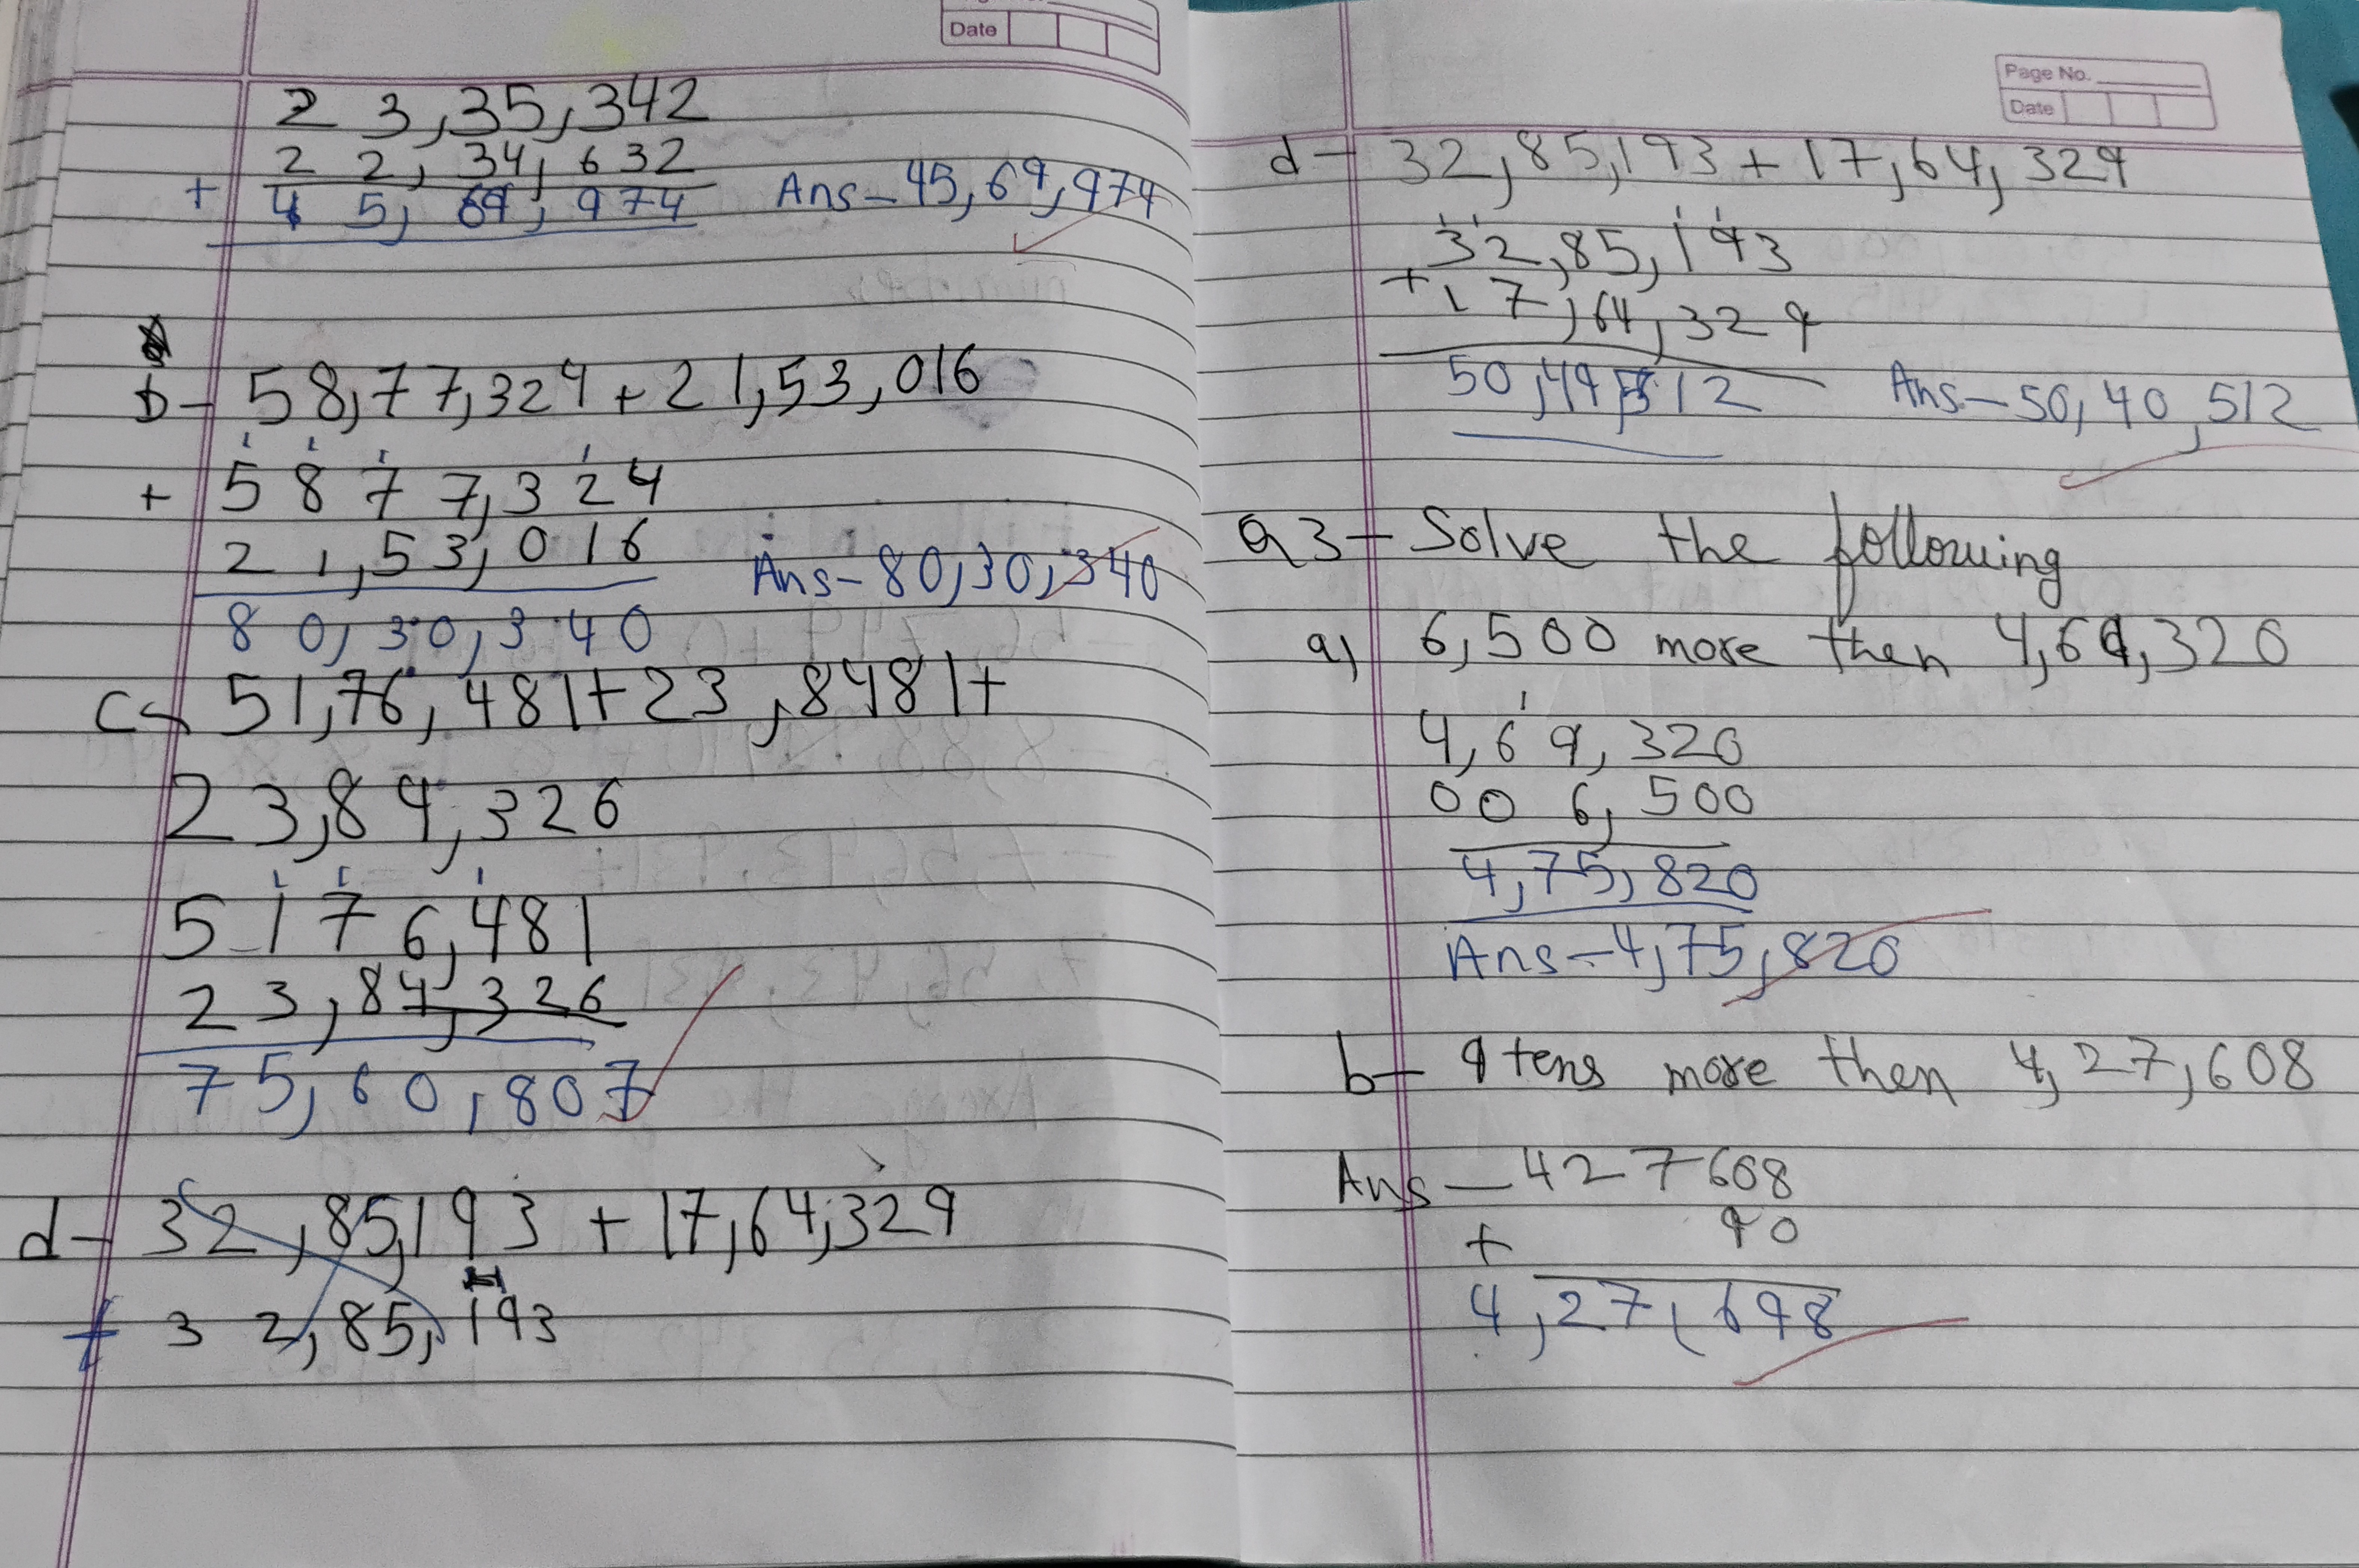 Date
23,35,342
22,34,632
+ 45,69,974 Ans-45,69,974
b- 58,77,324+21,53,016
1 1 1 1
+ 5877,324
21,53,016
Ans-80,30,340
80,30,340
c- 51,76,481+23,8481+
23,84,326
1 1 1
5176,481
23,84,326
75,60,807
d- 32,85,193 + 17,64,329
+ 32,85,193
Page No.
Date
d- 32,85,193+17,64,329
1 1 1 1
32,85,193
+17,64,329
50,49,512 Ans-50,40,512
Q3- Solve the following
a) 6,500 more then 4,69,320
1
4,69,320
006,500
4,75,820
Ans-4,75,820
b- 9tens more then 4,27,608
Ans-427608
+ 90
4,27,698